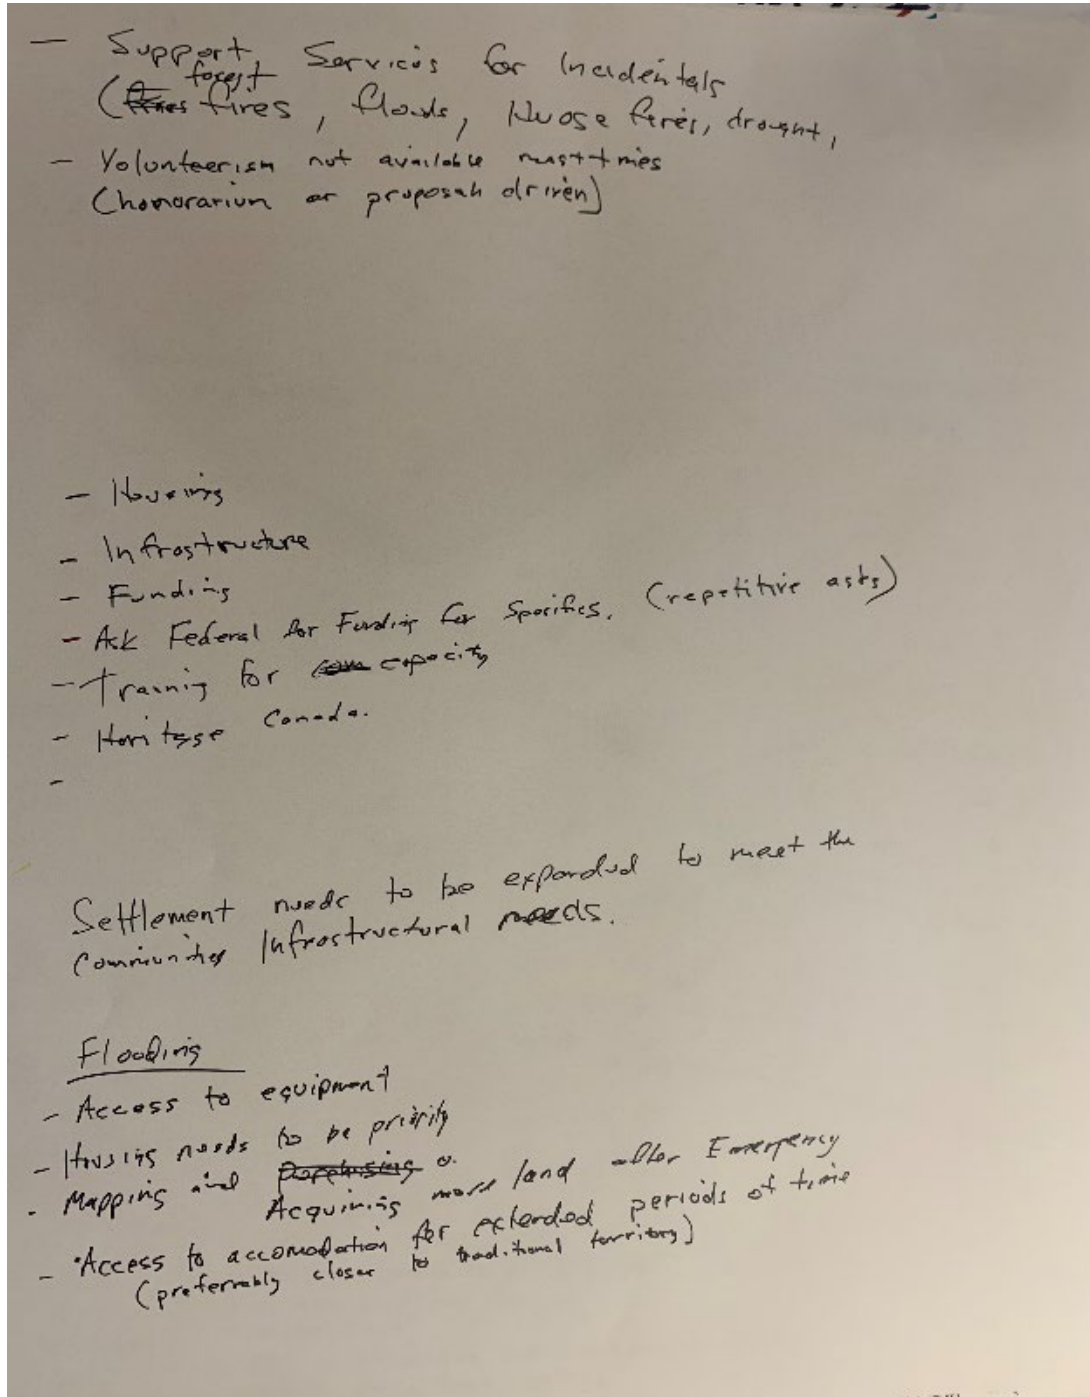 - Support Services for Incidentals
forest
(fires, floods, House fires, drought,
- Volunteerism not available most times
(honorarium or proposal driven)
- Housing
- Infrastructure
- Funding
- Ask Federal for Funding for Specifics. (repetitive asks)
- Training for capacity
- Heritage Canada.
-
Settlement needs to be expanded to meet the
Communities Infrastructural needs.
Flooding
- Access to equipment
- Housing needs to be priority
- Mapping and Purchasing
Acquiring more land after Emergency
- Access to accomodation for extended periods of time
(preferrably closer to traditional territory)